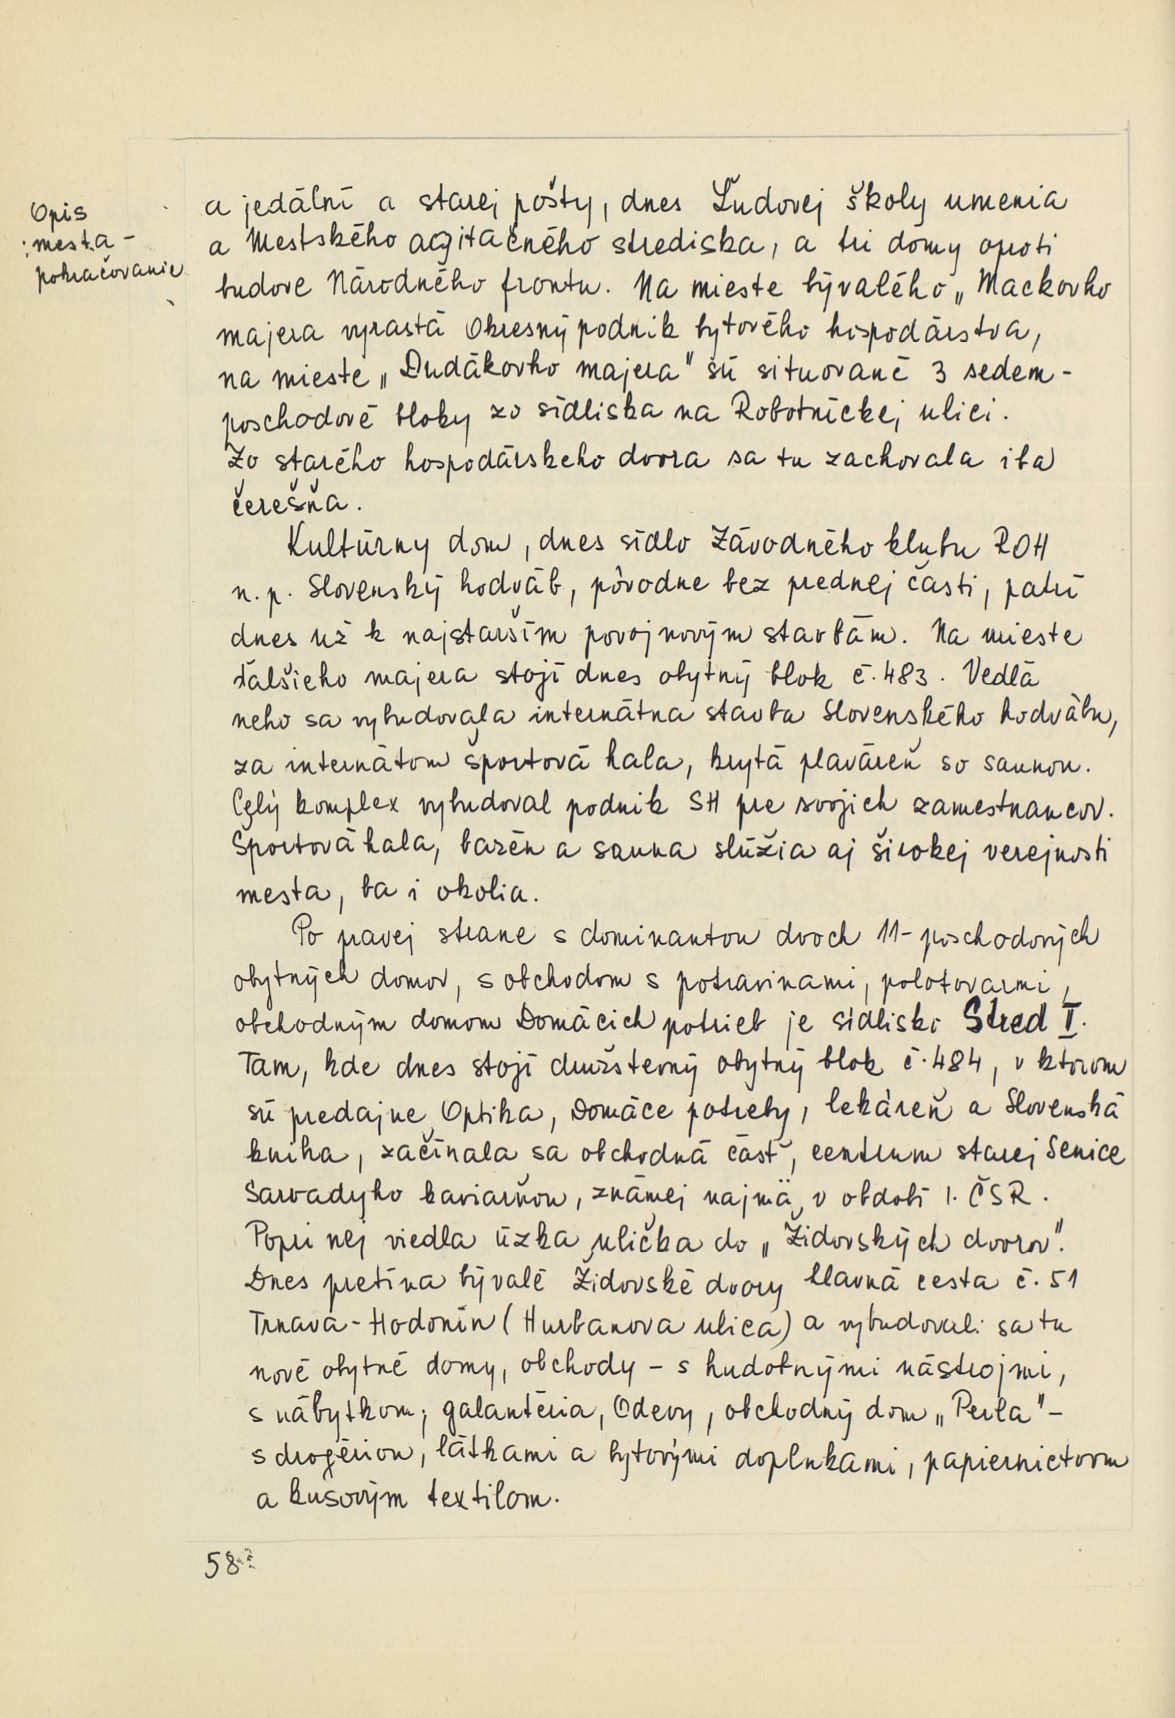 Opis
mesta -
pokračovanie
a jedální a starej pošty, dnes Ľudovej školy umenia
a Mestského agitačného strediska, a tri domy oproti
budove Národného frontu. Na mieste bývalého „Mackovho
majera vyrastá Okresný podnik bytového hospodárstva,
na mieste „Dudákovho majera" sú situované 3 sedem-
poschodové bloky zo sídliska na Robotníckej ulici.
Zo starého hospodárskeho dvora sa tu zachovala iba
čerešňa.
Kultúrny dom, dnes sídlo Závodného klubu ROH
n.p. Slovenský hodváb, pôvodne bez prednej časti, patrí
dnes už k najstarším povojnovým stavbám. Na mieste
ďalšieho majera stojí dnes obytný blok č. 483. Vedľa
neho sa vybudovala internátna stavba Slovenského hodvábu,
za internátom športová hala, krytá plaváreň so saunou.
Celý komplex vybudoval podnik SH pre svojich zamestnancov.
Športová hala, bazén a sauna slúžia aj širokej verejnosti
mesta, ba i okolia.
Po pravej strane s dominantou dvoch 11-poschodových
obytných domov, s obchodom s potravinami, polotovarmi,
obchodným domom Domácich potrieb je sídlisko Stred I.
Tam, kde dnes stojí družstevný obytný blok č. 484, v ktorom
sú predajne Optika, Domáce potreby, lekáreň a Slovenská
kniha, začínala sa obchodná časť, centrum starej Senice
Sarvadyho kaviarňou, známej najmä v období 1. ČSR.
Popri nej viedla úzka ulička do „Židovských dvorov".
Dnes pretína bývalé Židovské dvory hlavná cesta č. 51
Trnava - Hodonín (Hurbanova ulica) a vybudovali sa tu
nové obytné domy, obchody – s hudobnými nástrojmi,
s nábytkom, galantéria, Odevy, obchodný dom „Perla" –
s drogériou, látkami a bytovými doplnkami, papiernictvom
a kusovým textilom.
58